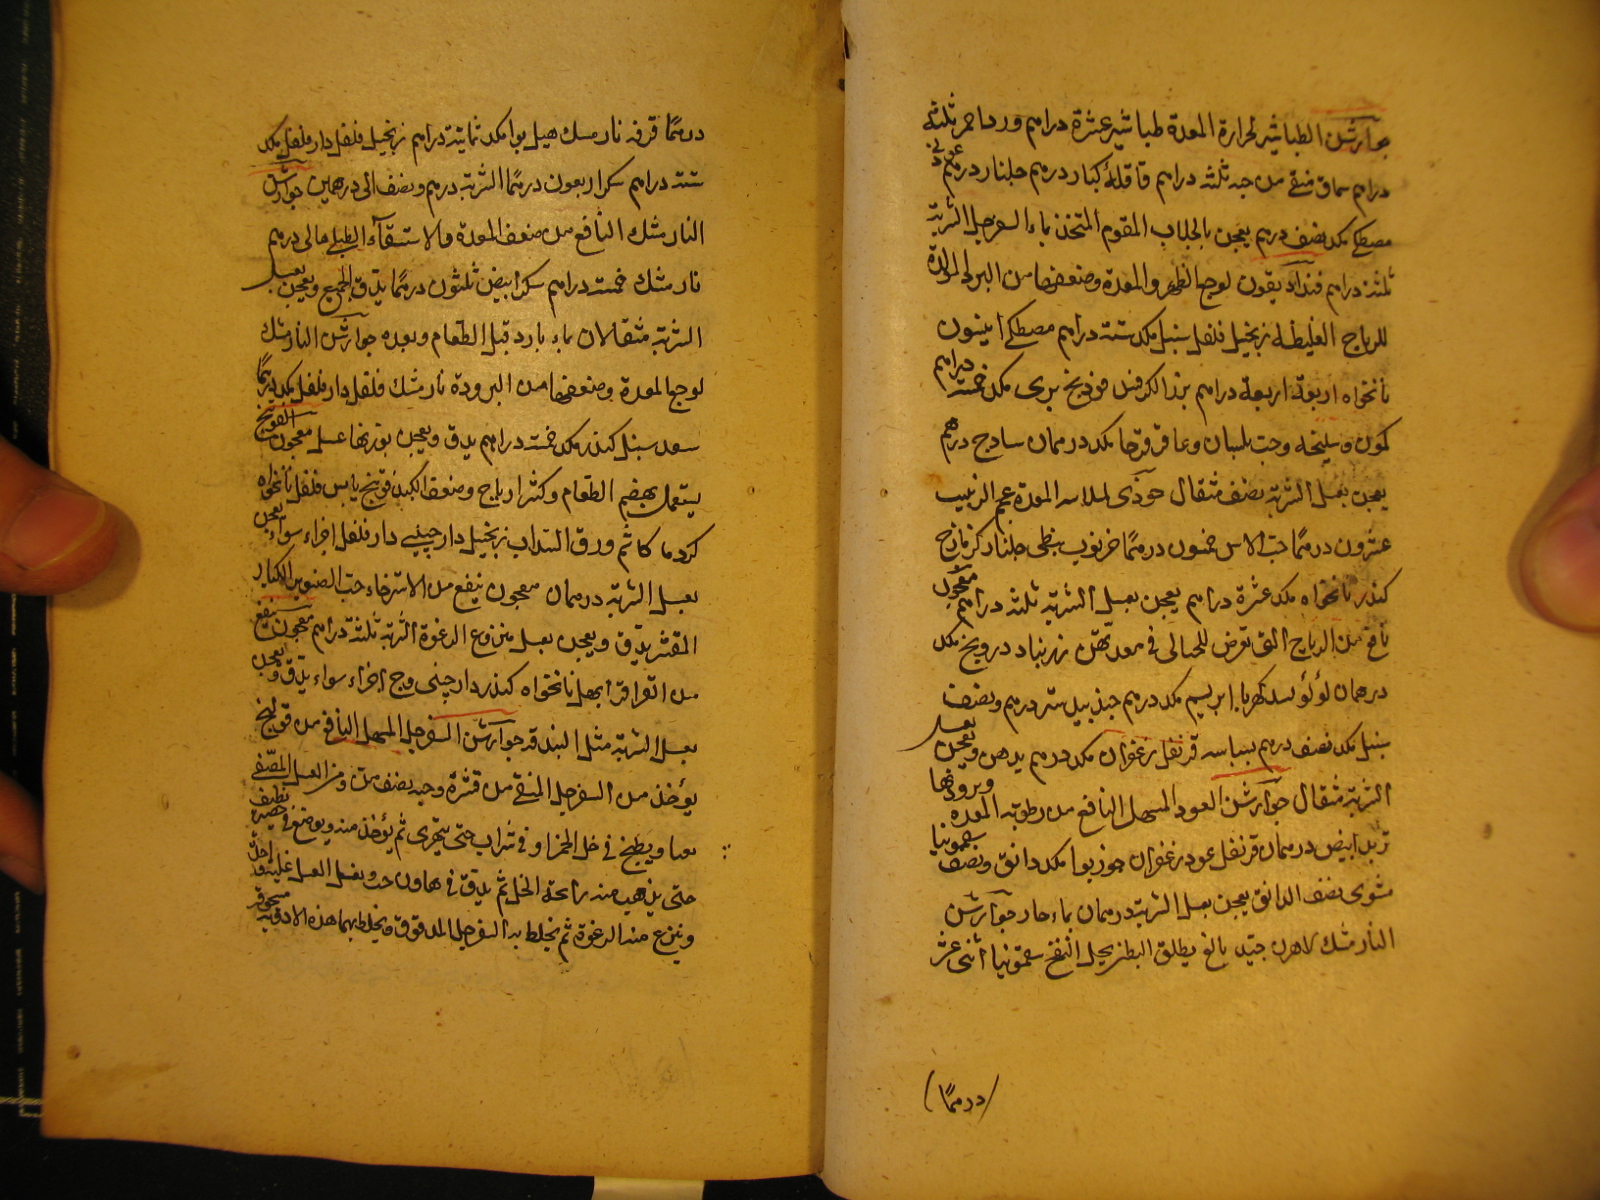 جوارشن الطباشير لحرارة المعدة طباشير عشرة دراهم ورد احمر ثلثة
دراهم سماق منقى من حبه ثلثة دراهم قاقلة كبار درهم جلنار درهم
مصطكى مكد نصف درهم يعجن بالجلاب المقوم المتخذ بماء السفرجل الشربة
ثلثة دراهم فنداديقون لوجع الظهر والمعدة وضعفها من البرد المولدة
للرياح الغليظة زنجبيل فلفل سنبل مكد ستة دراهم مصطكى انيسون
نانخواه اربعة اربعة دراهم بزر الكرفس فودنج برى مكد خمسة دراهم
كمون وسليخة وحب بلسان وعاقرقرحا مكد درهمان سادج درهم
يعجن بعسل الشربة نصف مثقال حوذى لملاسة المعدة عجم الزبيب
عشرون درهما حب الاس خمسون درهما خرنوب نبطى جلنار كزمازج
كندر نانخواه مكد عشرة دراهم يعجن بعسل الشربة ثلثة دراهم معجون
نافع من الرياح التى تعرض للحبالى فى معدتهن زرنباد درونج مكد
درهمان لؤلؤ بسد كهربا ابريسم مكد درهم جندبيدستر درهم ونصف
سنبل مكد نصف درهم بسباسه قرنفل زعفران مكد درهم يدهن ويعجن بعسل
الشربة مثقال جوارشن العود المسهل النافع من رطوبة المعدة وبرودتها
تربد ابيض درهمان قرنفل عود زعفران جوزبوا مكد دانق ونصف سقمونيا
مشوى نصف الدانق يعجن بعسل الشربة درهمان بماء حار جوارشن
النارمشك لاهرن جيد بالغ يطلق البطن يحل النفخ سقمونيا اثنى عشر
(درهما)
درهما قرفه نارمسك هيل بوا مكد ثمانية دراهم زنجبيل فلفل دارفلفل مكد
ستة دراهم سكر اربعون درهما الشربة درهم ونصف الى درهمين جوارشن
النارمشك النافع من ضعف المعدة والاستسقاء الطبلى هال درهم
نارمشك خمسة دراهم سكر ابيض ثلثون درهما يدق الجميع ويعجن بعسل
الشربة مثقالان بماء بارد قبل الطعام وبعده جوارشن النارمشك
لوجع المعدة وضعفها من البرودة نارمشك فلفل دارفلفل مكد درهما
سعد سنبل كندر مكد خمسة دراهم يدق ويعجن بوزنها عسل معجون الفودنج
يستعمل بهضم الطعام وكثر ارياح وضعف الكبد فودنج يابس فلفل نانخواه
كردما كاشم ورق السداب زنجبيل دارچينى دارفلفل اجزاء سواء يعجن
بعسل الشربة درهمان معجون ينفع من الاسترخاء حب الصنوبر الكبار
المقشر يدق ويعجن بعسل منزوع الرغوة الشربة ثلثة دراهم معجون ينفع
من الفواق ابهل نانخواه كندر دارچنى وج اجزاء سواء يدق ويعجن
بعسل الشربة مثل البندقة جوارشن السفرجل المسهل النافع من قولنج
يؤخذ من السفرجل المنقى من قشرة وحبه نصف من ومن العسل المصفى
نصفا ويطبخ فى خل الخمر او فى شراب حتى يتهرى ثم يؤخذ منه ويوضع فى خصير نظيف
حتى يذهب منه رائحة الخل ثم يدق فى هاون حب ويغسل العسل غليه واحدة
وينزع منه الرغوة ثم يخلط به السفرجل المدقوق ويخلط بهما هذه الادوية مسحوقة